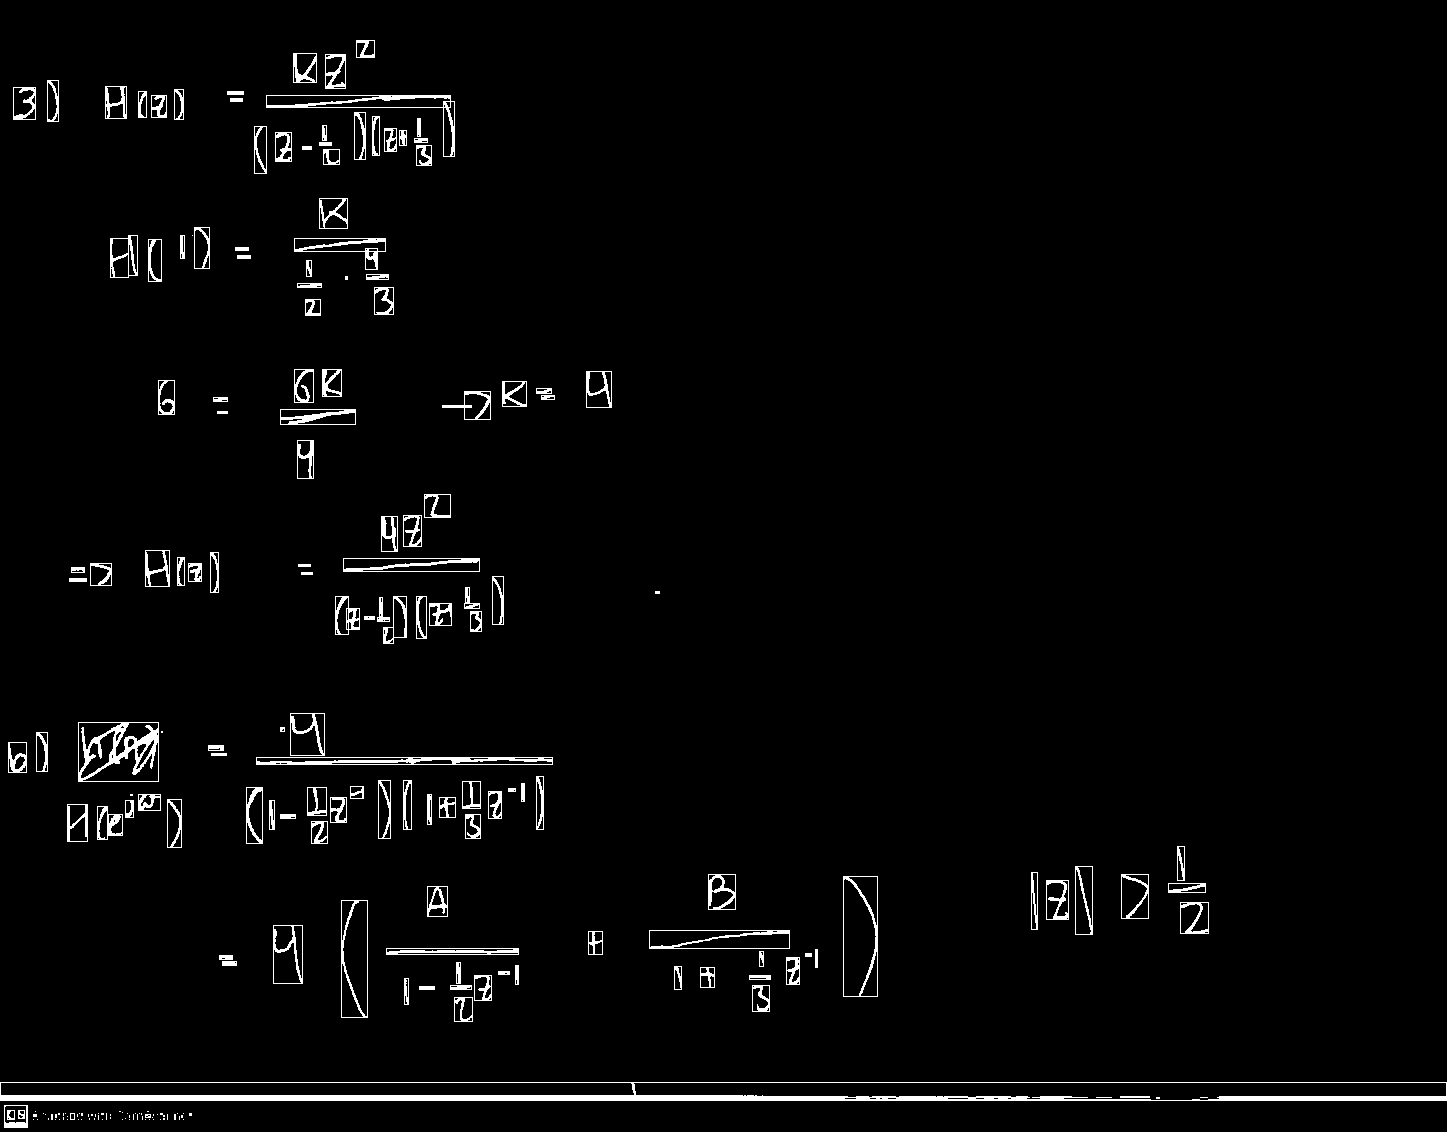 3) H(z) = Kz² / ((z - 1/2)(z + 1/3))
H(1) = K / (1/2 · 4/3)
6 = 6K / 4 → K = 4
=> H(z) = 4z² / ((z - 1/2)(z + 1/3))
b) = 4 / ((1 - 1/2 z⁻)(1 + 1/3 z⁻¹))
H(e^jω)
= 4 ( A / (1 - 1/2 z⁻¹) + B / (1 + 1/3 z⁻¹) ) |z| > 1/2
CS Scanned with CamScanner